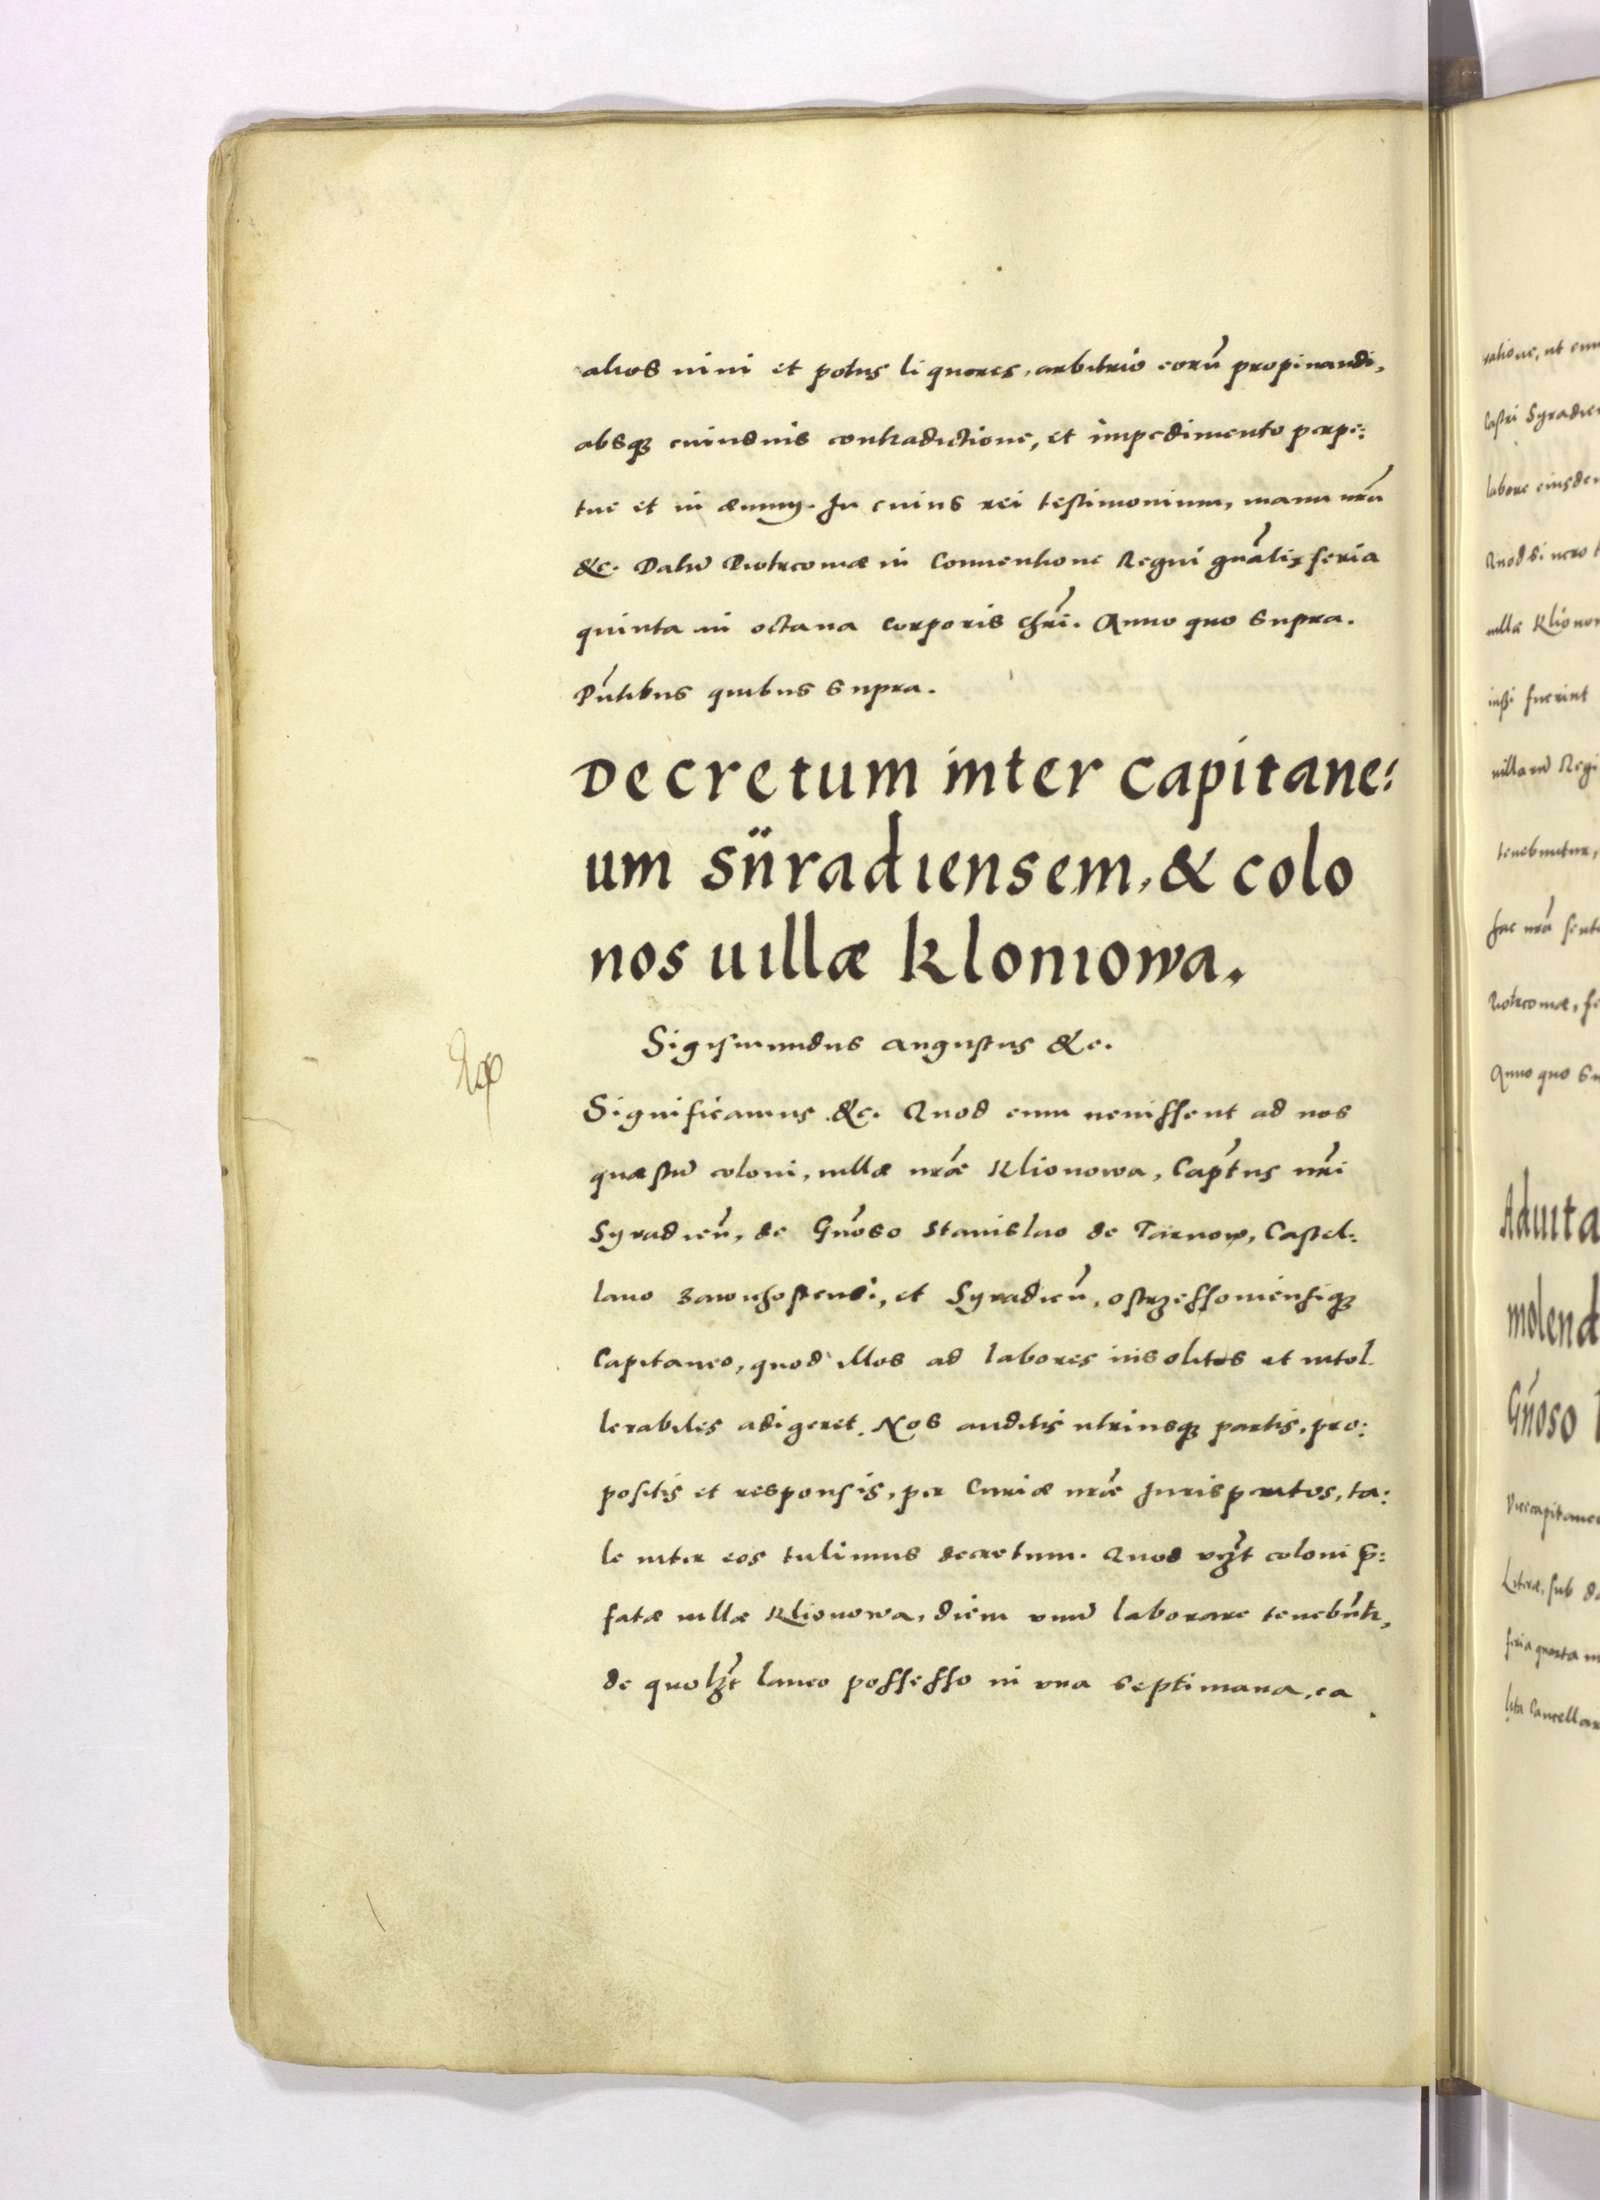 alios uini et potus liquores, arbitrio eorũ propinandi,
absq3 cuiusuis contradictione, et impedimento perpe:
tue et in æuum. In cuius rei testimonium, manu nrã
&c. Datũ Piotrcouiæ in Conuentione Regni gñali, feria
quinta in octaua corporis chri. Anno quo supra.
Pñtibus quibus supra.
Decretum inter capitane:
um Siiradiensem, & colo
nos uillæ Kloniowa.
Sigismundus augustus &c.
Significamus &c. Quod cum uenissent ad nos
quæstũ coloni, uillæ nræ Klionowa, Captus nri
Syradień, de Gñoso Stanislao de Tarnow, Castel:
lano Zawichosteñsi, et Syradień, ostrzessouiensiq3
Capitaneo, quod illos ad labores insolitos et intol
lerabiles adigeret. Nos auditis utriusq3 partis, pro:
positis et responsis, per Curiæ nræ Jurisperitos, ta:
le inter eos tulimus decretum. Quod uz̃t coloni p̃:
fatæ uillæ Klionowa, diem unũ laborare tenebñtr,
de quolz̃t laneo possesso in una septimana, ea
ratione, ut cum
Castri Syradień
labore eiusdem
Quod si uero
uillæ Klionow
iussi fuerint
uillarũ Regi
tenebuntur,
hac nrã sent
Piotrcouiæ, fe
Anno quo su
Aduita
molend
Gñoso
Vicecapitaneo
Literæ, sub da
feria quarta in
lita Cancellar